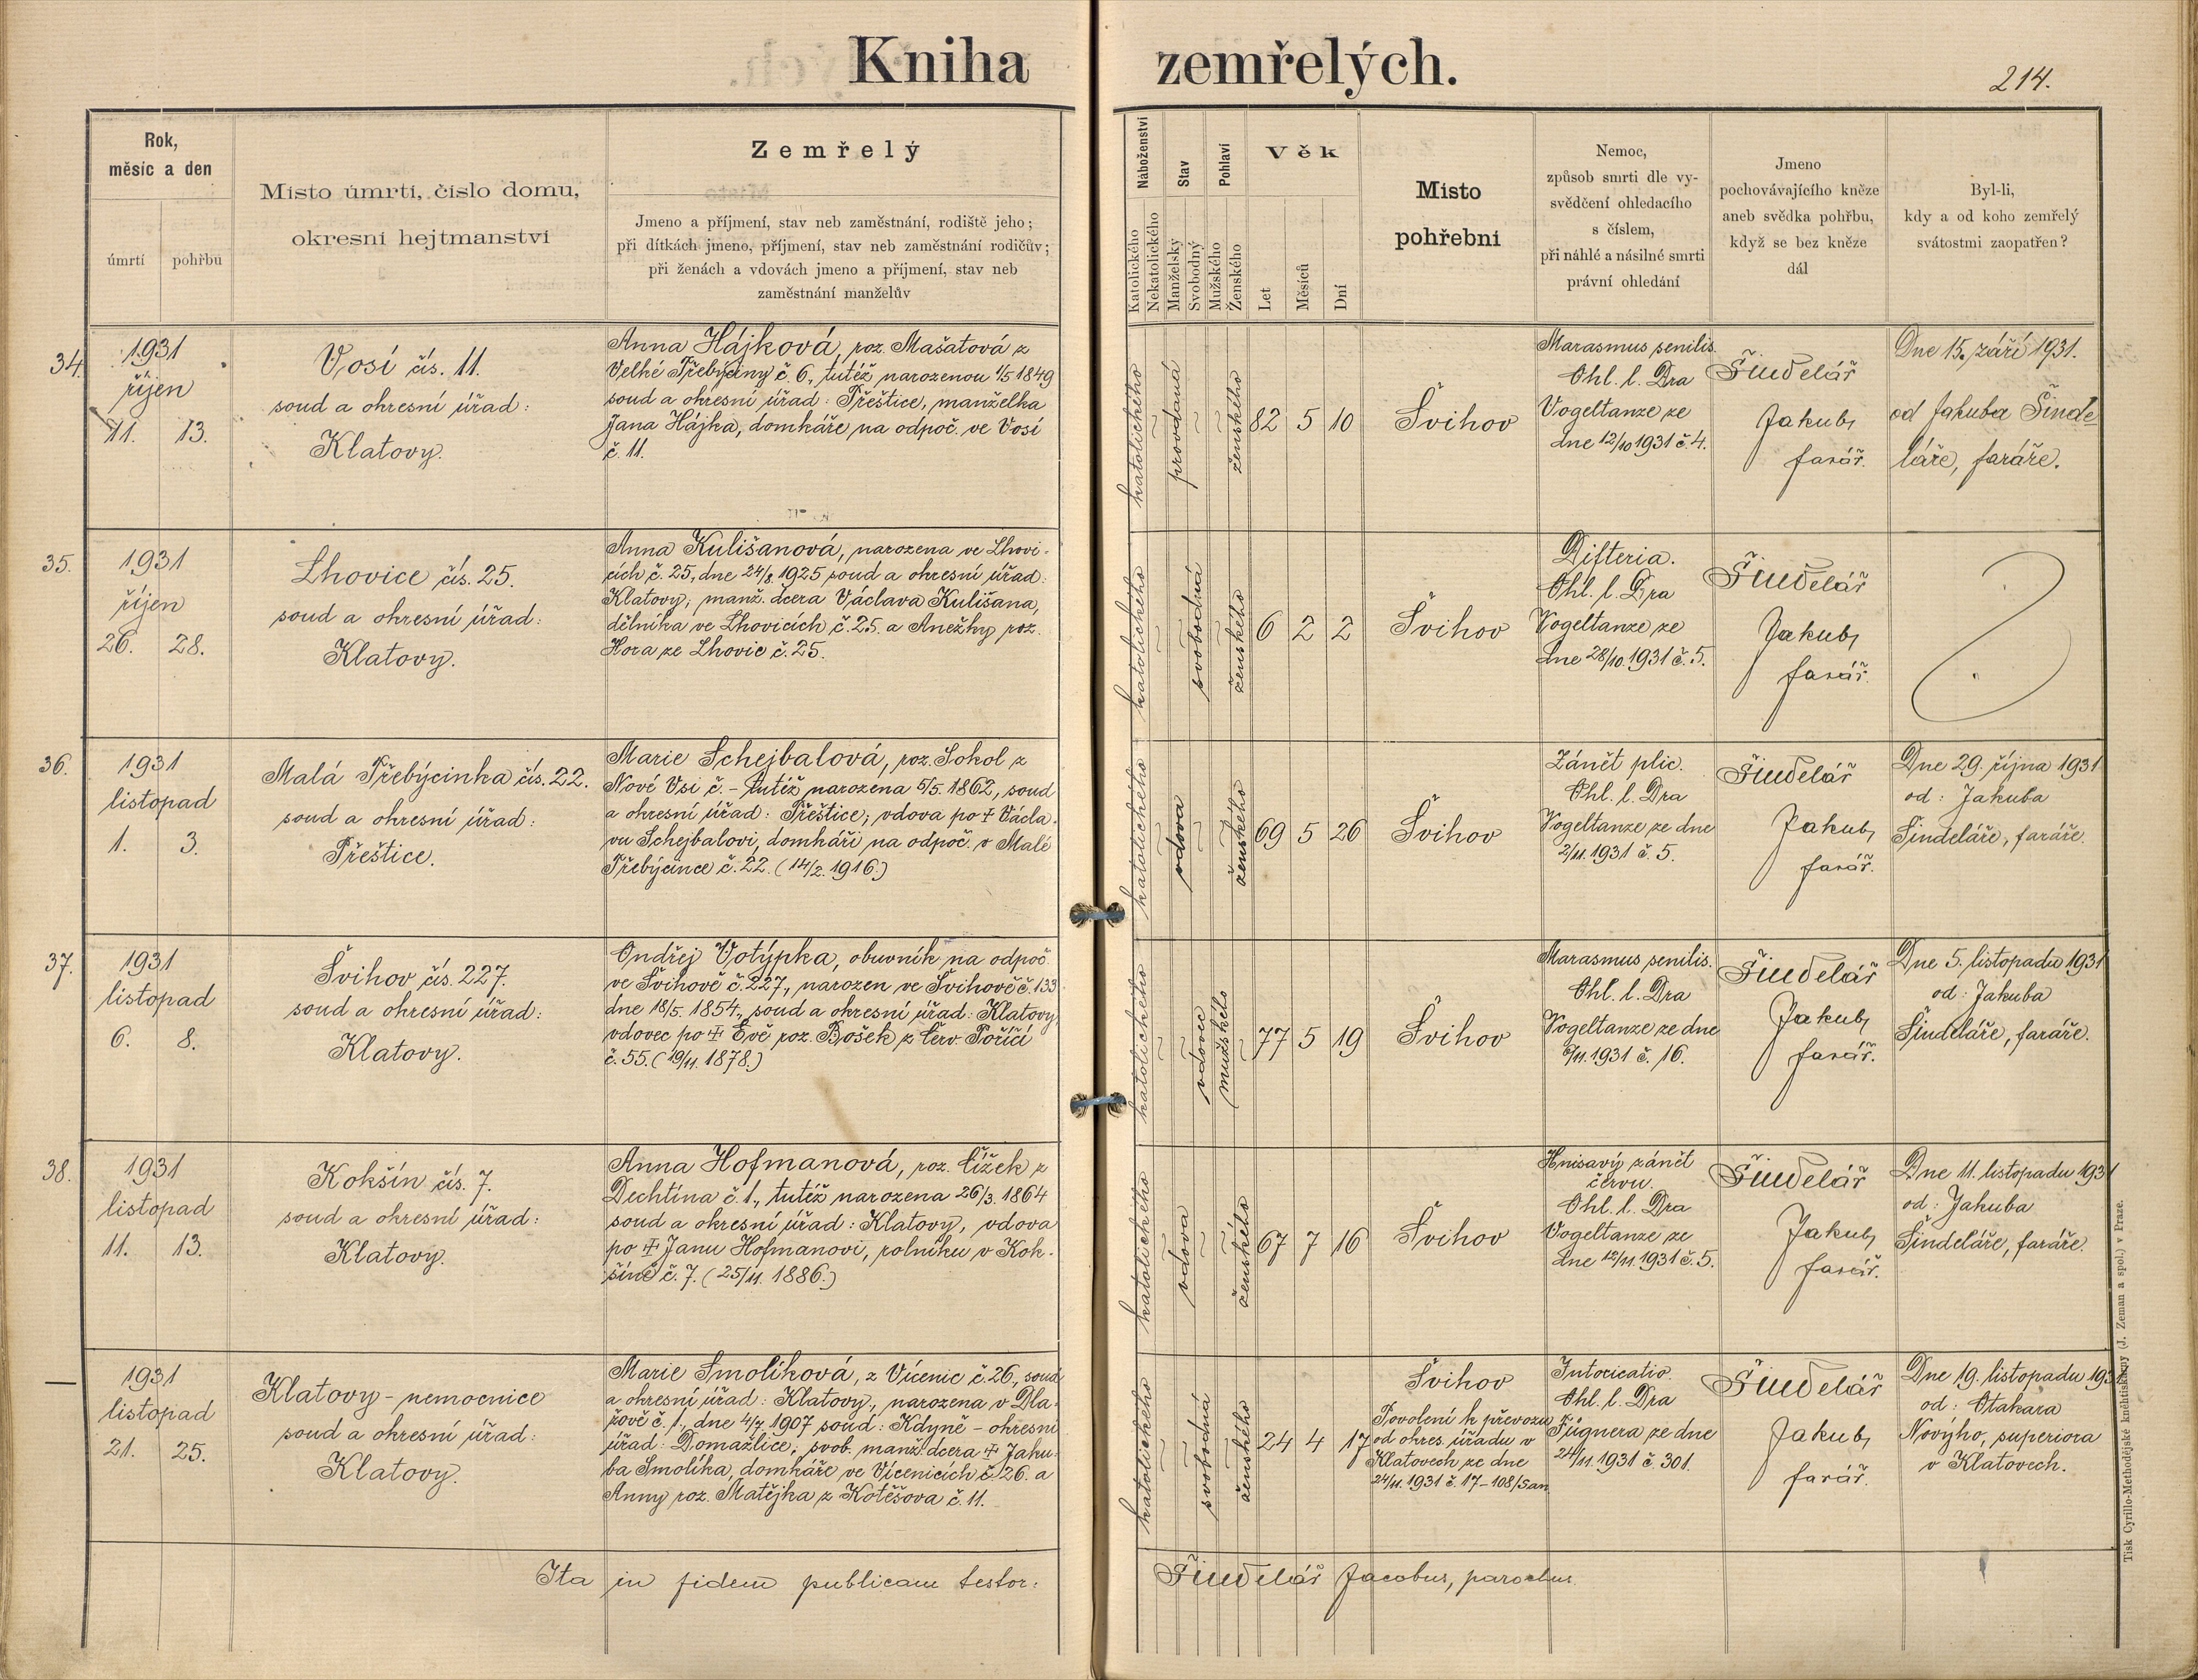 Kniha zemřelých.
214.
Rok,
měsíc a den
úmrtí
pohřbu
Místo úmrtí, číslo domu,
okresní hejtmanství
Zemřelý
Jmeno a příjmení, stav neb zaměstnání, rodiště jeho;
při dítkách jmeno, příjmení, stav neb zaměstnání rodičův;
při ženách a vdovách jmeno a příjmení, stav neb
zaměstnání manželův
Náboženství
Katolického
Nekatolického
Stav
Manželský
Svobodný
Pohlaví
Mužského
Ženského
Věk
Let
Měsíců
Dní
Místo
pohřební
Nemoc,
způsob smrti dle vy-
svědčení ohledacího
s číslem,
při náhlé a násilné smrti
právní ohledání
Jmeno
pochovávajícího kněze
aneb svědka pohřbu,
když se bez kněze
dál
Byl-li,
kdy a od koho zemřelý
svátostmi zaopatřen?
34.
1931
říjen
11. 13.
Vosí čís. 11.
soud a okresní úřad:
Klatovy.
Anna Hájková, roz. Mašatová z
Velké Třebýciny č. 6., tutéž narozenou 1/5 1849
soud a okresní úřad: Přeštice, manželka
Jana Hájka, domkáře na odpoč. ve Vosí
č. 11.
katolického
provdaná
ženského
82 5 10
Švihov
Marasmus senilis.
Ohl. l. Dra
Vogeltanze ze
dne 12/10 1931 č. 4.
Šindelář
Jakub,
farář.
Dne 15. září 1931.
od Jakuba Šinde-
láře, faráře.
35.
1931
říjen
26. 28.
Lhovice čís. 25.
soud a okresní úřad:
Klatovy.
Anna Kulišanová, narozena ve Lhovi-
cích č. 25, dne 24/8 1925 soud a okresní úřad:
Klatovy, manž. dcera Václava Kulišana,
dělníka ve Lhovicích č. 25. a Anežky roz.
Hora ze Lhovic č. 25.
katolického
svobodná
ženského
6 2 2
Švihov
Difteria.
Ohl. l. Dra
Vogeltanze ze
dne 28/10. 1931 č. 5.
Šindelář
Jakub,
farář.
36.
1931
listopad
1. 3.
Malá Třebýcinka čís. 22.
soud a okresní úřad:
Přeštice.
Marie Schejbalová, roz. Sokol z
Nové Vsi č. - tutéž narozena 5/5. 1862, soud
a okresní úřad: Přeštice, vdova po + Václa-
vu Schejbalovi, domkáři na odpoč. v Malé
Třebýcince č. 22. (14/2. 1916.)
katolického
vdova
ženského
69 5 26
Švihov
Zánět plic.
Ohl. l. Dra
Vogeltanze ze dne
2/11. 1931 č. 5.
Šindelář
Jakub,
farář.
Dne 29. října 1931
od: Jakuba
Šindeláře, faráře.
37.
1931
listopad
6. 8.
Švihov čís. 227.
soud a okresní úřad:
Klatovy.
Ondřej Votýpka, obuvník na odpoč.
ve Švihově č. 227., narozen ve Švihově č. 133
dne 18/5. 1854., soud a okresní úřad: Klatovy,
vdovec po + Evě roz. Bošek z Červ. Poříčí
č. 55. (19/11. 1878.)
katolického
vdovec
mužského
77 5 19
Švihov
Marasmus senilis.
Ohl. l. Dra
Vogeltanze ze dne
6/11. 1931 č. 16.
Šindelář
Jakub,
farář.
Dne 5. listopadu 1931
od: Jakuba
Šindeláře, faráře.
38.
1931
listopad
11. 13.
Kokšín čís. 7.
soud a okresní úřad:
Klatovy.
Anna Hofmanová, roz. Čížek z
Dechtína č. 1., tutéž narozena 26/3. 1864
soud a okresní úřad: Klatovy, vdova
po + Janu Hofmanovi, rolníku v Kok-
šíně č. 7. (25/11. 1886.)
katolického
vdova
ženského
67 7 16
Švihov
Hnisavý zánět
červu.
Ohl. l. Dra
Vogeltanze ze
dne 12/11. 1931 č. 5.
Šindelář
Jakub,
farář.
Dne 11. listopadu 1931
od: Jakuba
Šindeláře, faráře.
—
1931
listopad
21. 25.
Klatovy - nemocnice
soud a okresní úřad:
Klatovy.
Marie Smolíková, z Vícenic č. 26, soud
a okresní úřad: Klatovy, narozena v Dla-
žově č. 1., dne 4/7. 1907 soud: Kdyně - okresní
úřad: Domažlice, svob. manž. dcera + Jaku-
ba Smolíka, domkáře ve Vícenicích č. 26. a
Anny roz. Matějka z Kotěšova č. 11.
katolického
svobodná
ženského
24 4 17
Švihov
Povolení k převozu
od okres. úřadu v
Klatovech ze dne
24/11. 1931 č. 17-108/San
Intoxicatio.
Ohl. l. Dra
Fügnera ze dne
24/11. 1931 č. 301.
Šindelář
Jakub,
farář.
Dne 19. listopadu 193
od: Otakara
Nového, superiora
v Klatovech.
Ita in fidem publicam testor: Šindelář Jacobus, parochus.
Tisk Cyrillo-Methodějské knihtiskárny (J. Zeman a spol.) v Praze.